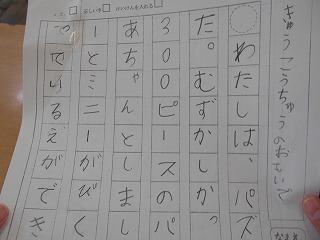 正しい字□ けいけんを入れる□
きゅうこうちゅうのおもいで
わたしは、パズ
た。むずかしのかっ
300ピースのパ
あちゃんとしま
ーとミニーがびく
でいるえができ
なまえ